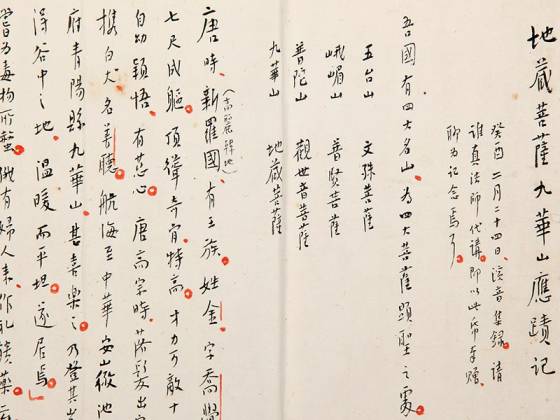 地藏菩薩九華山應蹟記
癸酉二月二十四日演音集錄請
真法師代講即以此奉贈
聊為記念焉
吾國有四大名山為四大菩薩顯聖之處
五台山 文殊菩薩
峨嵋山 普賢菩薩
普陀山 觀世音菩薩
九華山 地藏菩薩
唐時新羅國有王族姓金字喬
七尺成軀頂聳奇骨特高才力可敵十
自幼穎悟有慈心唐高宗時落髮出
攜白犬名善聽航海至中華安徽池
府青陽縣九華山甚喜樂之乃登其
得谷中之地溫暖而平坦遂居焉
嘗為毒物所螫俄有婦人來作礼饋藥